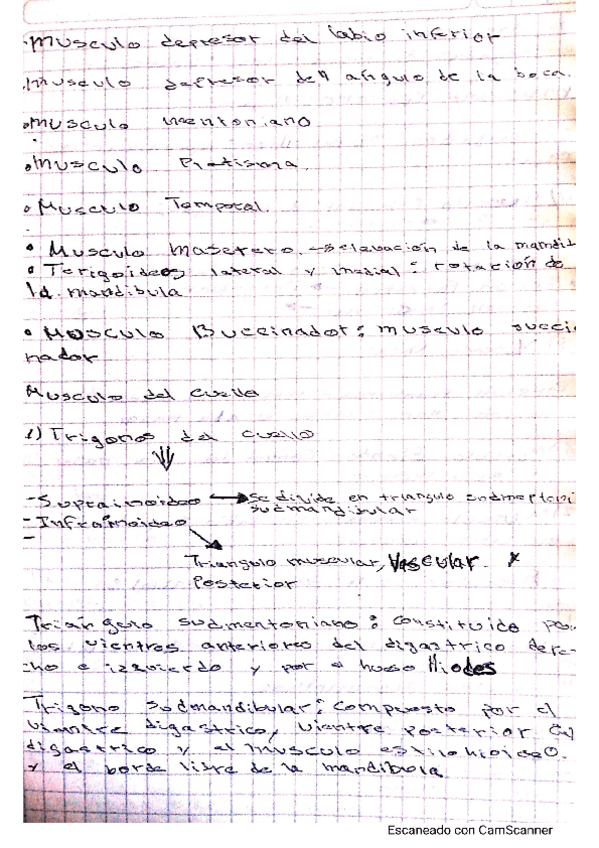 ·Musculo depresor del labio inferior
·Musculo depresor del angulo de la boca.
·Musculo mentoniano
·Musculo Platisma
·Musculo Temporal.
·Musculo Masetero. → elevación de la mandib
·Terigoideos lateral y medial: rotación de
la mandibula
·Musculo Buccinador: musculo succi
nador
Musculo del cuello
1) Trigonos del cuello
-Supraioideo → se divide en triangulo
submandibular
-Infraioideo
-
Triangulo muscular, Vascular y
Posterior
Triangulo submentoniano: constituido po
los vientres anteriores del digastrico dere-
cho e izquierdo y por el hueso Hiodes
Trigono submandibular: compuesto por el
vientre digastrico, vientre posterior del
digastrico y el musculo estilohioideo.
y el borde libre de la mandibula
Escaneado con CamScanner